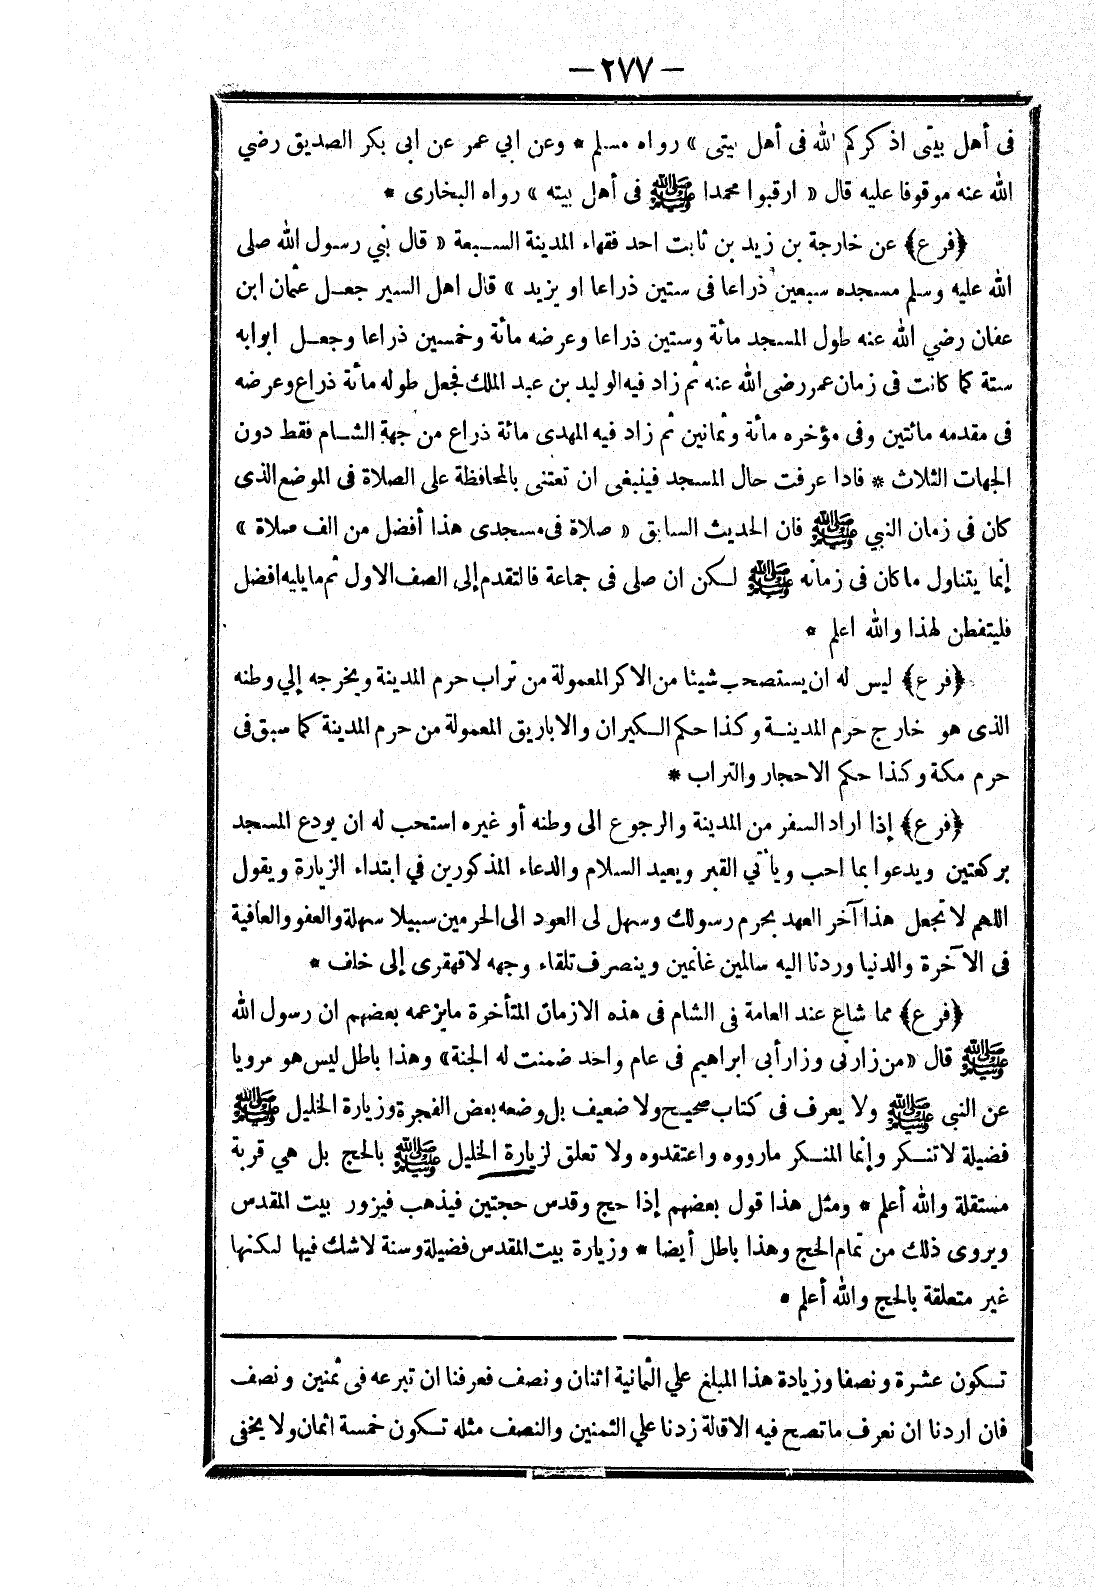 — ٢٧٧ —
فى أهل بيتى اذكركم الله فى أهل بيتى » رواه مسلم * وعن ابي عمر عن ابى بكر الصديق رضي
الله عنه موقوفا عليه قال « ارقبوا محمدا ﷺ فى أهل بيته » رواه البخارى *
﴿فرع﴾ عن خارجة بن زيد بن ثابت احد فقهاء المدينة السبعة « قال بني رسول الله صلى
الله عليه وسلم مسجده سبعين ذراعا فى ستين ذراعا او يزيد » قال اهل السير جعل عثمان ابن
عفان رضي الله عنه طول المسجد مائة وستين ذراعا وعرضه مائة وخمسين ذراعا وجعل ابوابه
ستة كما كانت فى زمان عمر رضى الله عنه ثم زاد فيه الوليد بن عبد الملك فجعل طوله مائة ذراع وعرضه
فى مقدمه مائتين وفى مؤخره مائة وثمانين ثم زاد فيه المهدى مائة ذراع من جهة الشام فقط دون
الجهات الثلاث * فاذا عرفت حال المسجد فينبغى ان تعتنى بالمحافظة على الصلاة فى الموضع الذى
كان فى زمان النبي ﷺ فان الحديث السابق « صلاة فى مسجدى هذا أفضل من الف صلاة »
إنما يتناول ما كان فى زمانه ﷺ لكن ان صلى فى جماعة فالتقدم إلى الصف الاول ثم مايليه افضل
فليتفطن لهذا والله اعلم *
﴿فرع﴾ ليس له ان يستصحب شيئا من الاكر المعمولة من تراب حرم المدينة ويخرجه إلي وطنه
الذى هو خارج حرم المدينة وكذا حكم الكيران والاباريق المعمولة من حرم المدينة كما سبق فى
حرم مكة وكذا حكم الاحجار والتراب *
﴿فرع﴾ إذا اراد السفر من المدينة والرجوع الى وطنه أو غيره استحب له ان يودع المسجد
بركعتين ويدعوا بما احب ويأتي القبر ويعيد السلام والدعاء المذكورين في ابتداء الزيارة ويقول
اللهم لا تجعل هذا آخر العهد بحرم رسولك وسهل لى العود الى الحرمين سبيلا سهلة والعفو والعافية
فى الآخرة والدنيا وردنا اليه سالمين غانمين وينصرف تلقاء وجهه لا قهقرى إلى خلف *
﴿فرع﴾ مما شاع عند العامة فى الشام فى هذه الازمان المتأخرة مايزعمه بعضهم ان رسول الله
ﷺ قال «من زارنى وزار أبى ابراهيم فى عام واحد ضمنت له الجنة» وهذا باطل ليس هو مرويا
عن النبى ﷺ ولا يعرف فى كتاب صحيح ولا ضعيف بل وضعه بعض الفجرة وزيارة الخليل ﷺ
فضيلة لا تنكر وإنما المنكر مارووه واعتقدوه ولا تعلق لزيارة الخليل ﷺ بالحج بل هي قربة
مستقلة والله أعلم * ومثل هذا قول بعضهم إذا حج وقدس حجتين فيذهب فيزور بيت المقدس
ويروى ذلك من تمام الحج وهذا باطل أيضا * وزيارة بيت المقدس فضيلة وسنة لاشك فيها لكنها
غير متعلقة بالحج والله أعلم *
تكون عشرة ونصفا وزيادة هذا المبلغ علي الثمانية اثنان ونصف فعرفنا ان تبرعه فى ثمنين ونصف
فان اردنا ان نعرف ماتصح فيه الاقالة زدنا علي الثمنين والنصف مثله تكون خمسة اثمان ولا يخفى